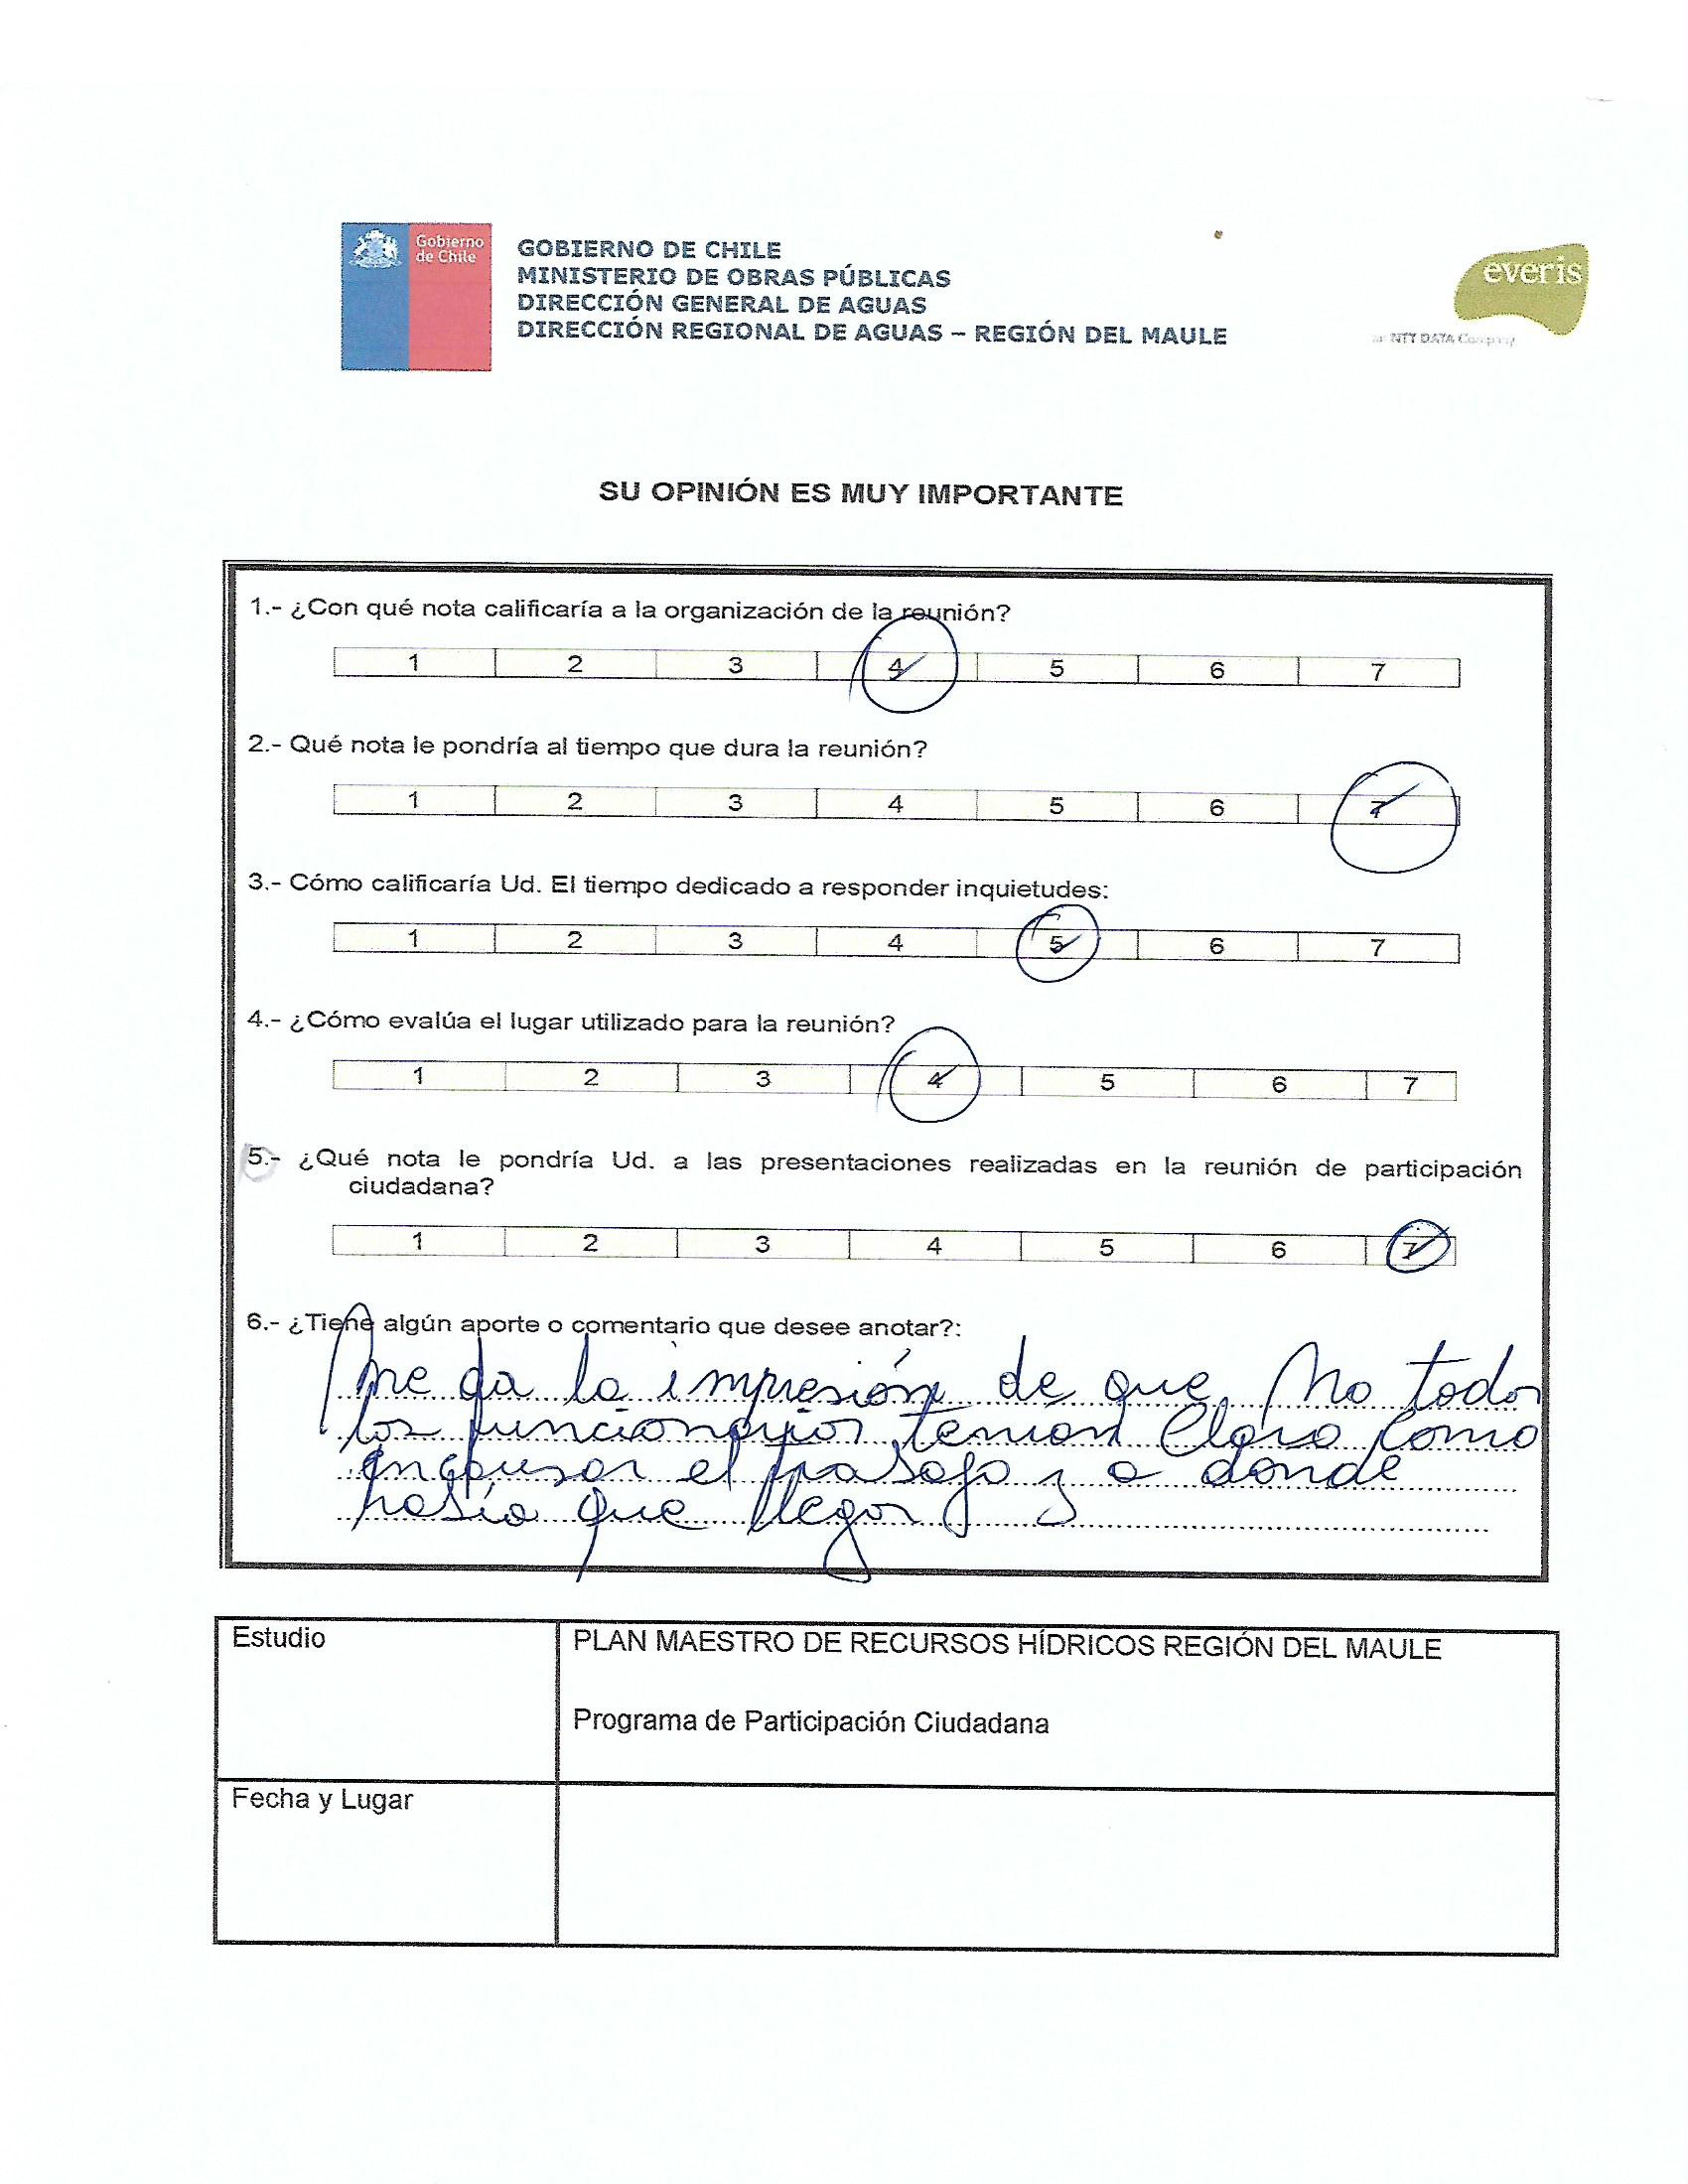 Gobierno
de Chile
GOBIERNO DE CHILE
MINISTERIO DE OBRAS PÚBLICAS
DIRECCIÓN GENERAL DE AGUAS
DIRECCIÓN REGIONAL DE AGUAS – REGIÓN DEL MAULE
everis
an NTT DATA Company
SU OPINIÓN ES MUY IMPORTANTE
1.- ¿Con qué nota calificaría a la organización de la reunión?
1 2 3 4 5 6 7
2.- Qué nota le pondría al tiempo que dura la reunión?
1 2 3 4 5 6 7
3.- Cómo calificaría Ud. El tiempo dedicado a responder inquietudes:
1 2 3 4 5 6 7
4.- ¿Cómo evalúa el lugar utilizado para la reunión?
1 2 3 4 5 6 7
5.- ¿Qué nota le pondría Ud. a las presentaciones realizadas en la reunión de participación
ciudadana?
1 2 3 4 5 6 7
6.- ¿Tiene algún aporte o comentario que desee anotar?:
Me da la impresión de que no todos
los funcionarios tenían claro como
el trabajo y a donde
había que llegar
Estudio
PLAN MAESTRO DE RECURSOS HÍDRICOS REGIÓN DEL MAULE
Programa de Participación Ciudadana
Fecha y Lugar